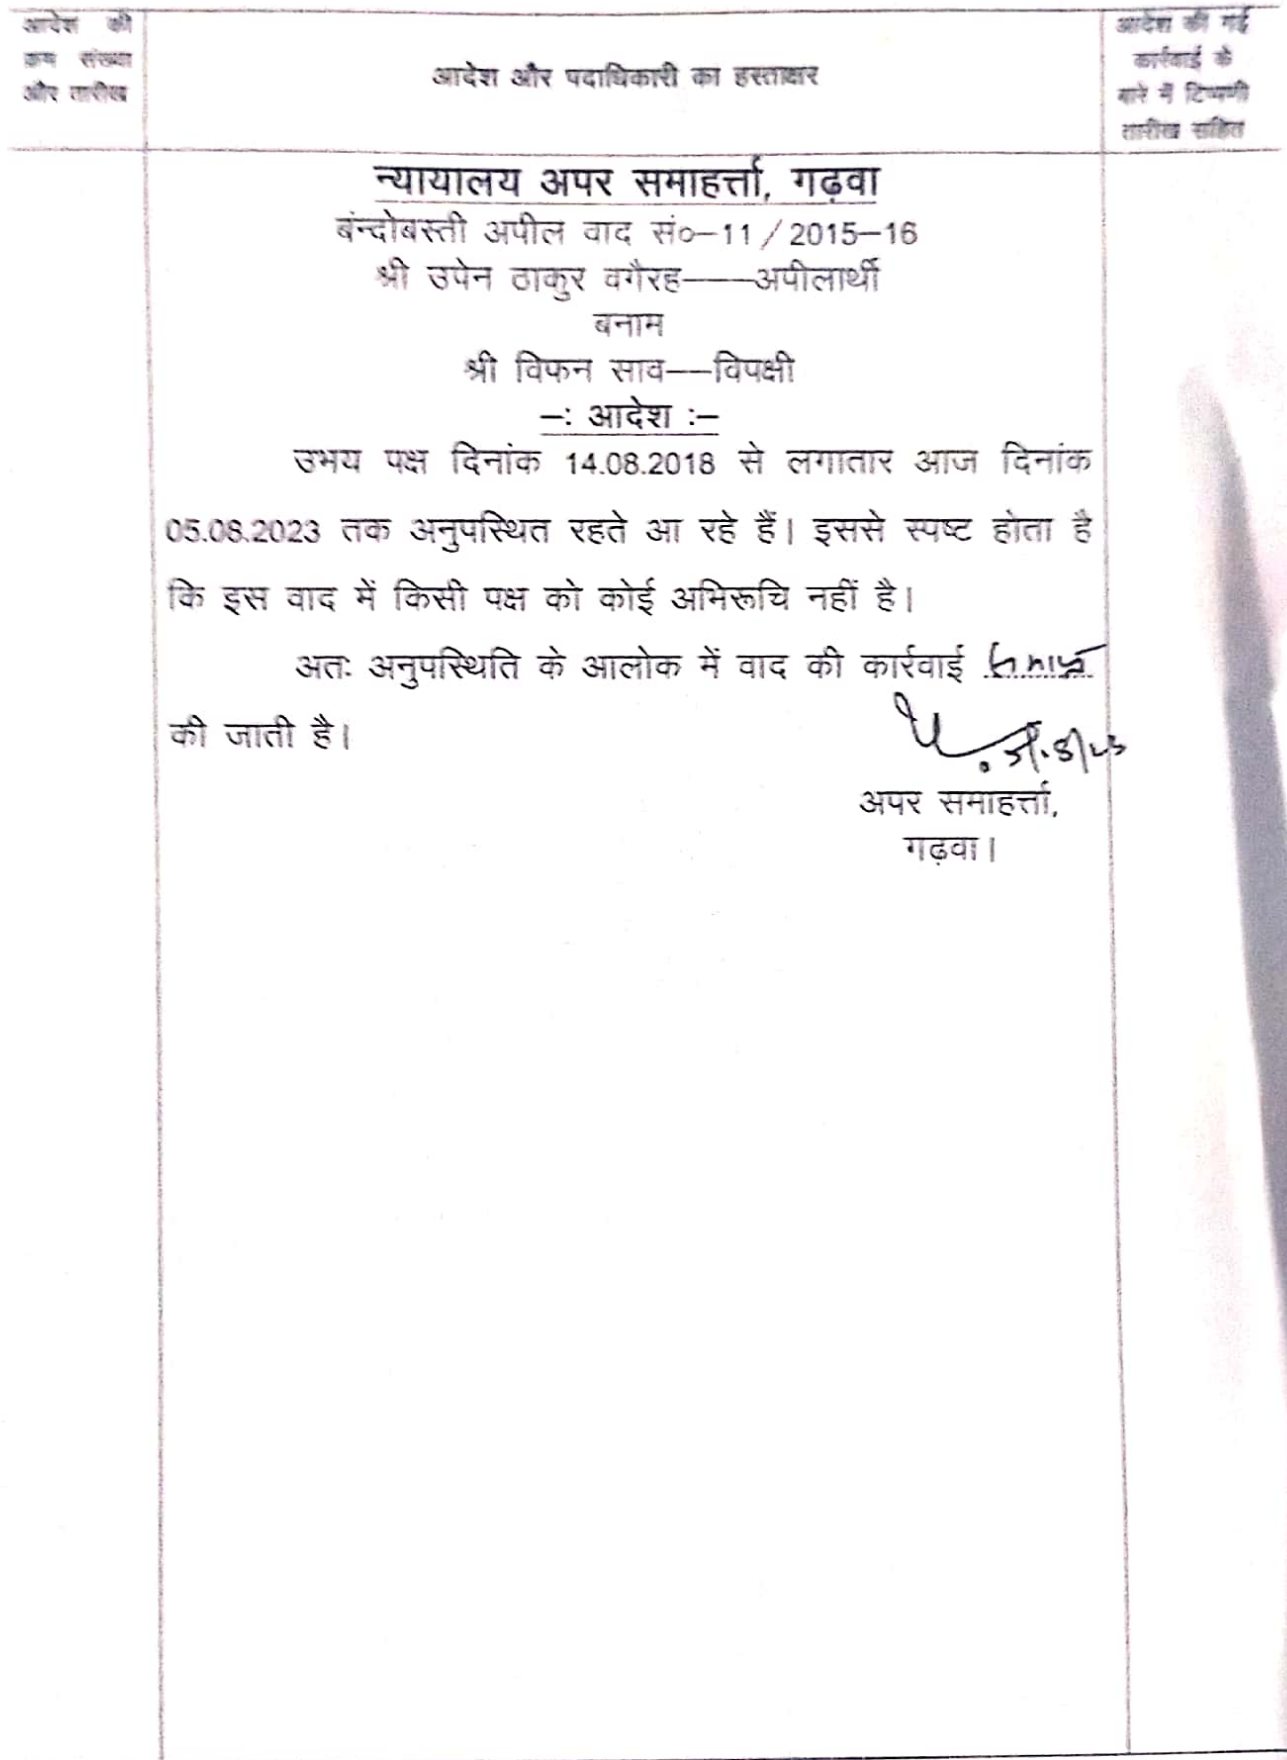 आदेश की
क्रम संख्या
और तारीख
आदेश और पदाधिकारी का हस्ताक्षर
आदेश की गई
कार्रवाई के
बारे में टिप्पणी
तारीख सहित
न्यायालय अपर समाहर्त्ता, गढ़वा
बंन्दोबस्ती अपील वाद सं०–11/2015–16
श्री उपेन ठाकुर वगैरह–––अपीलार्थी
बनाम
श्री विफन साव––विपक्षी
–: आदेश :–
उभय पक्ष दिनांक 14.08.2018 से लगातार आज दिनांक
05.08.2023 तक अनुपस्थित रहते आ रहे हैं। इससे स्पष्ट होता है
कि इस वाद में किसी पक्ष को कोई अभिरूचि नहीं है।
अतः अनुपस्थिति के आलोक में वाद की कार्रवाई समाप्त
की जाती है।
अपर समाहर्त्ता,
गढ़वा।